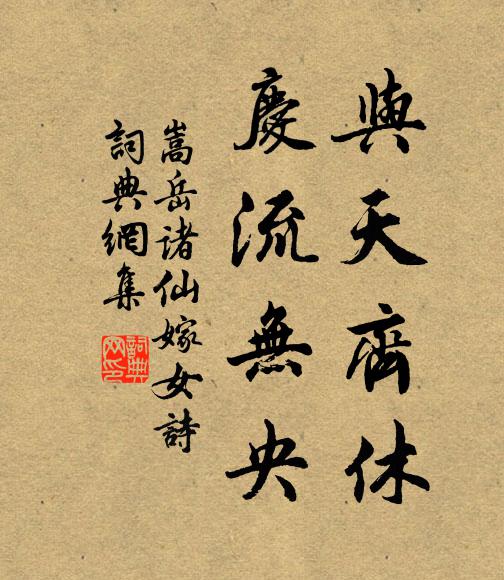 與天齊休
慶流無央
嵩岳諸仙嫁女詩
詞典網集
詞典网印